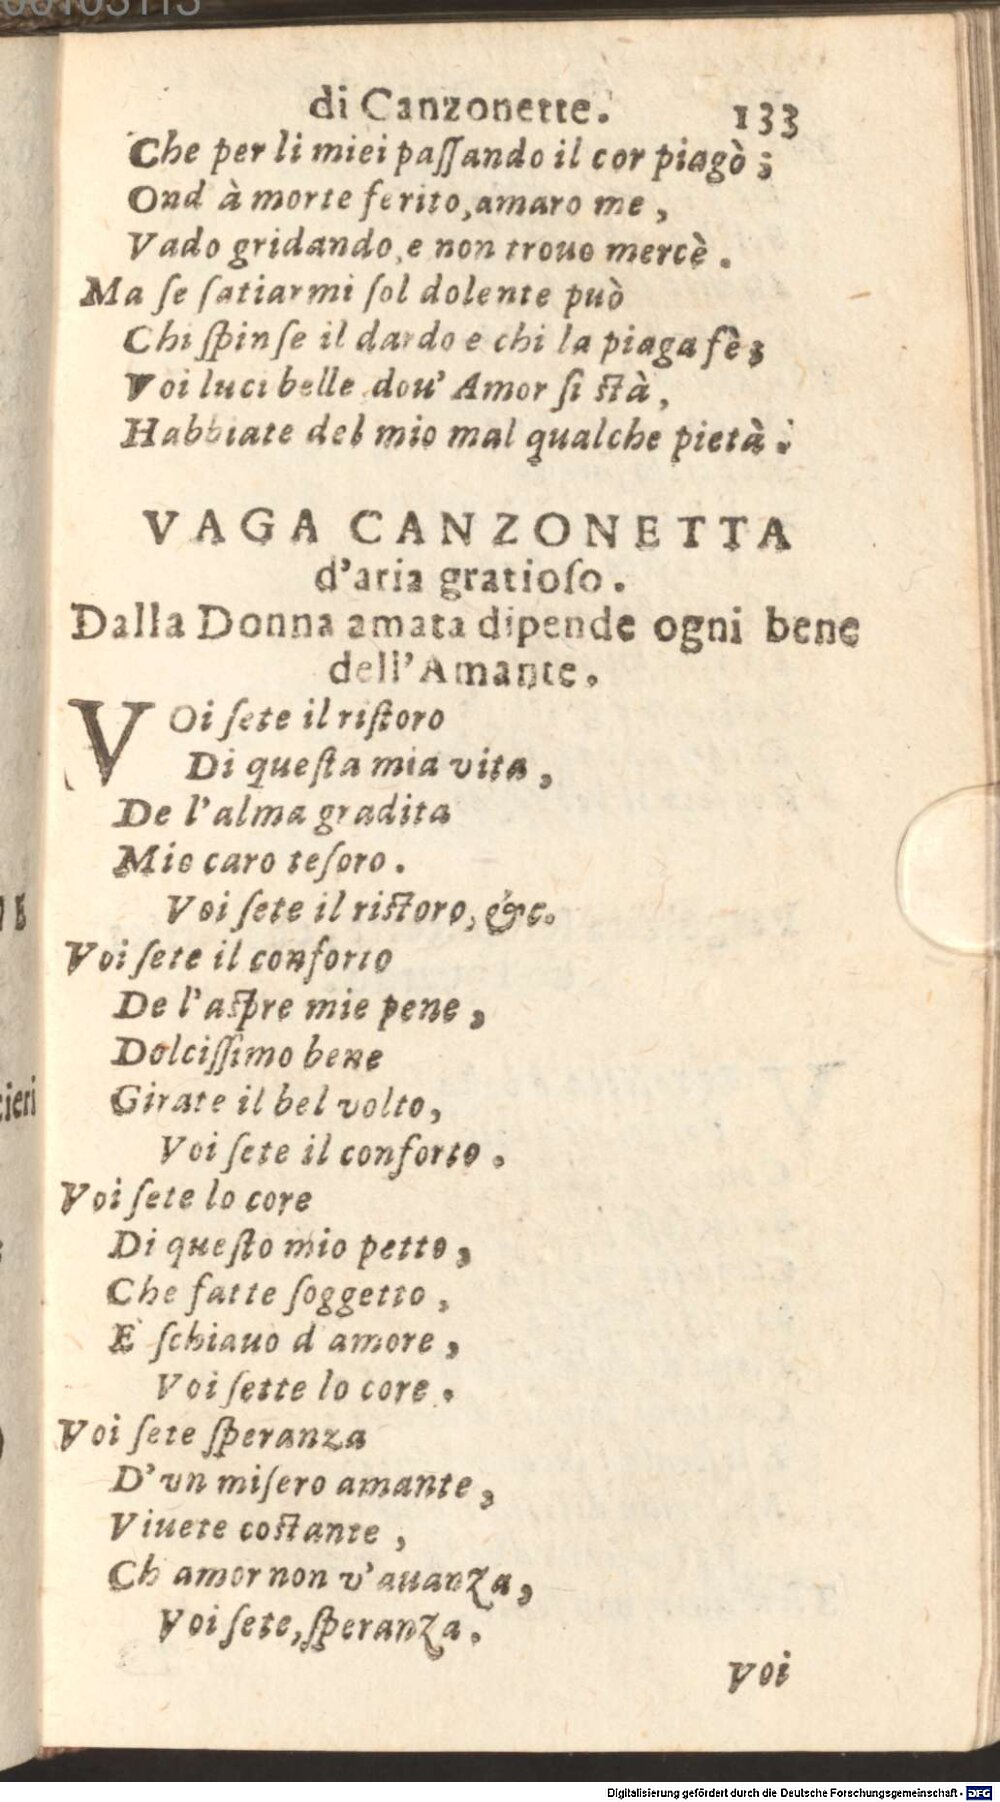 di Canzonette. 133
Che per li miei paſſando il cor piagò;
Ond à morte ferito, amaro me,
Vado gridando, e non trouo mercè.
Ma ſe ſatiarmi ſol dolente può
Chi ſpinſe il dardo e chi la piaga fè;
Voi luci belle dou' Amor ſi ſtà,
Habbiate del mio mal qualche pietà.
VAGA CANZONETTA
d'aria gratioſo.
Dalla Donna amata dipende ogni bene
dell'Amante.
VOi ſete il riſtoro
Di queſta mia vita,
De l'alma gradita
Mio caro teſoro.
Voi ſete il riſtoro, &c.
Voi ſete il conforto
De l'aſpre mie pene,
Dolciſſimo bene
Girate il bel volto,
Voi ſete il conforto.
Voi ſete lo core
Di queſto mio petto,
Che fatte ſoggetto,
E ſchiauo d amore,
Voi ſette lo core.
Voi ſete ſperanza
D'vn miſero amante,
Viuete coſtante,
Ch amor non v'auanza,
Voi ſete, ſperanza.
Voi
cieri
Digitalisierung gefördert durch die Deutsche Forschungsgemeinschaft - DFG